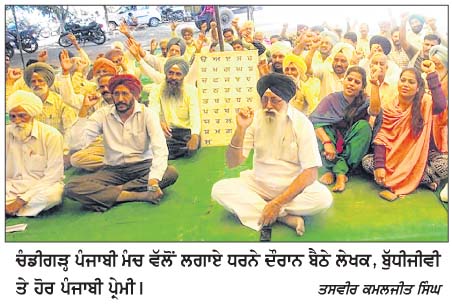 ਚੰਡੀਗੜ੍ਹ ਪੰਜਾਬੀ ਮੰਚ ਵੱਲੋਂ ਲਗਾਏ ਧਰਨੇ ਦੌਰਾਨ ਬੈਠੇ ਲੇਖਕ, ਬੁੱਧੀਜੀਵੀ
ਤੇ ਹੋਰ ਪੰਜਾਬੀ ਪ੍ਰੇਮੀ। ਤਸਵੀਰ ਕਮਲਜੀਤ ਸਿੰਘ